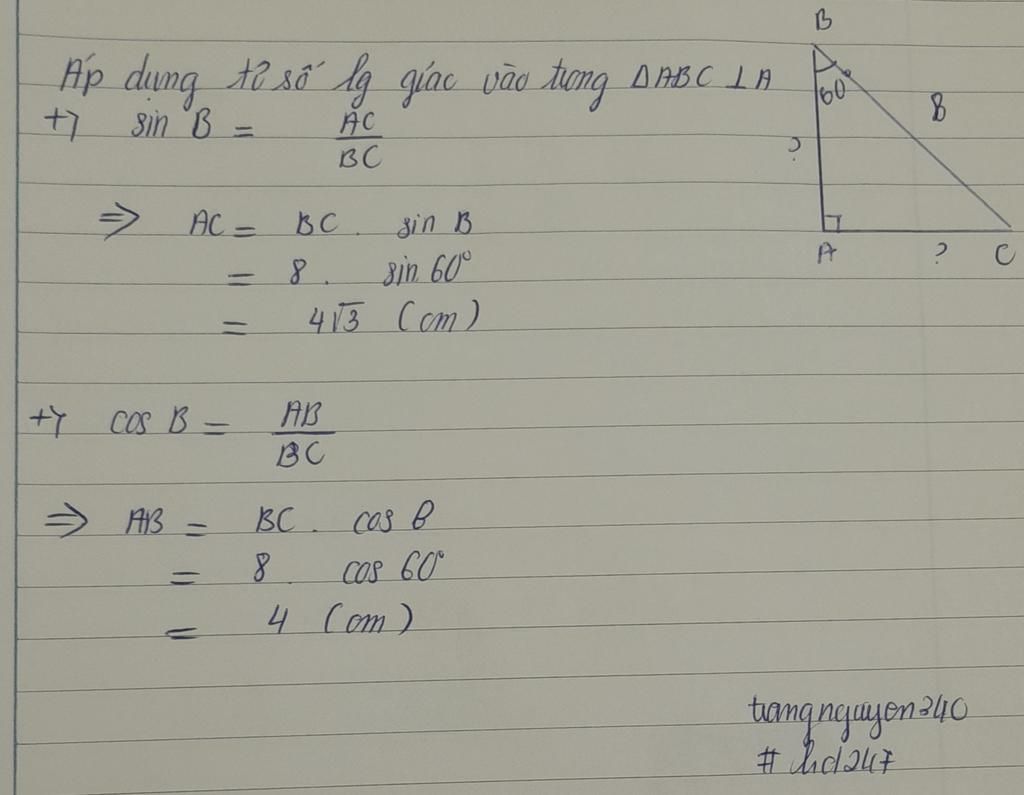 Áp dụng tỉ số lg giác vào trong ΔABC ⊥A
+, sin B = AC/BC
⇒ AC = BC . sin B
= 8 . sin 60°
= 4√3 (cm)
+, cos B = AB/BC
⇒ AB = BC . cos B
= 8 . cos 60°
= 4 (cm)
B
60°
8
?
A
?
C
trangnguyen340
# hd247